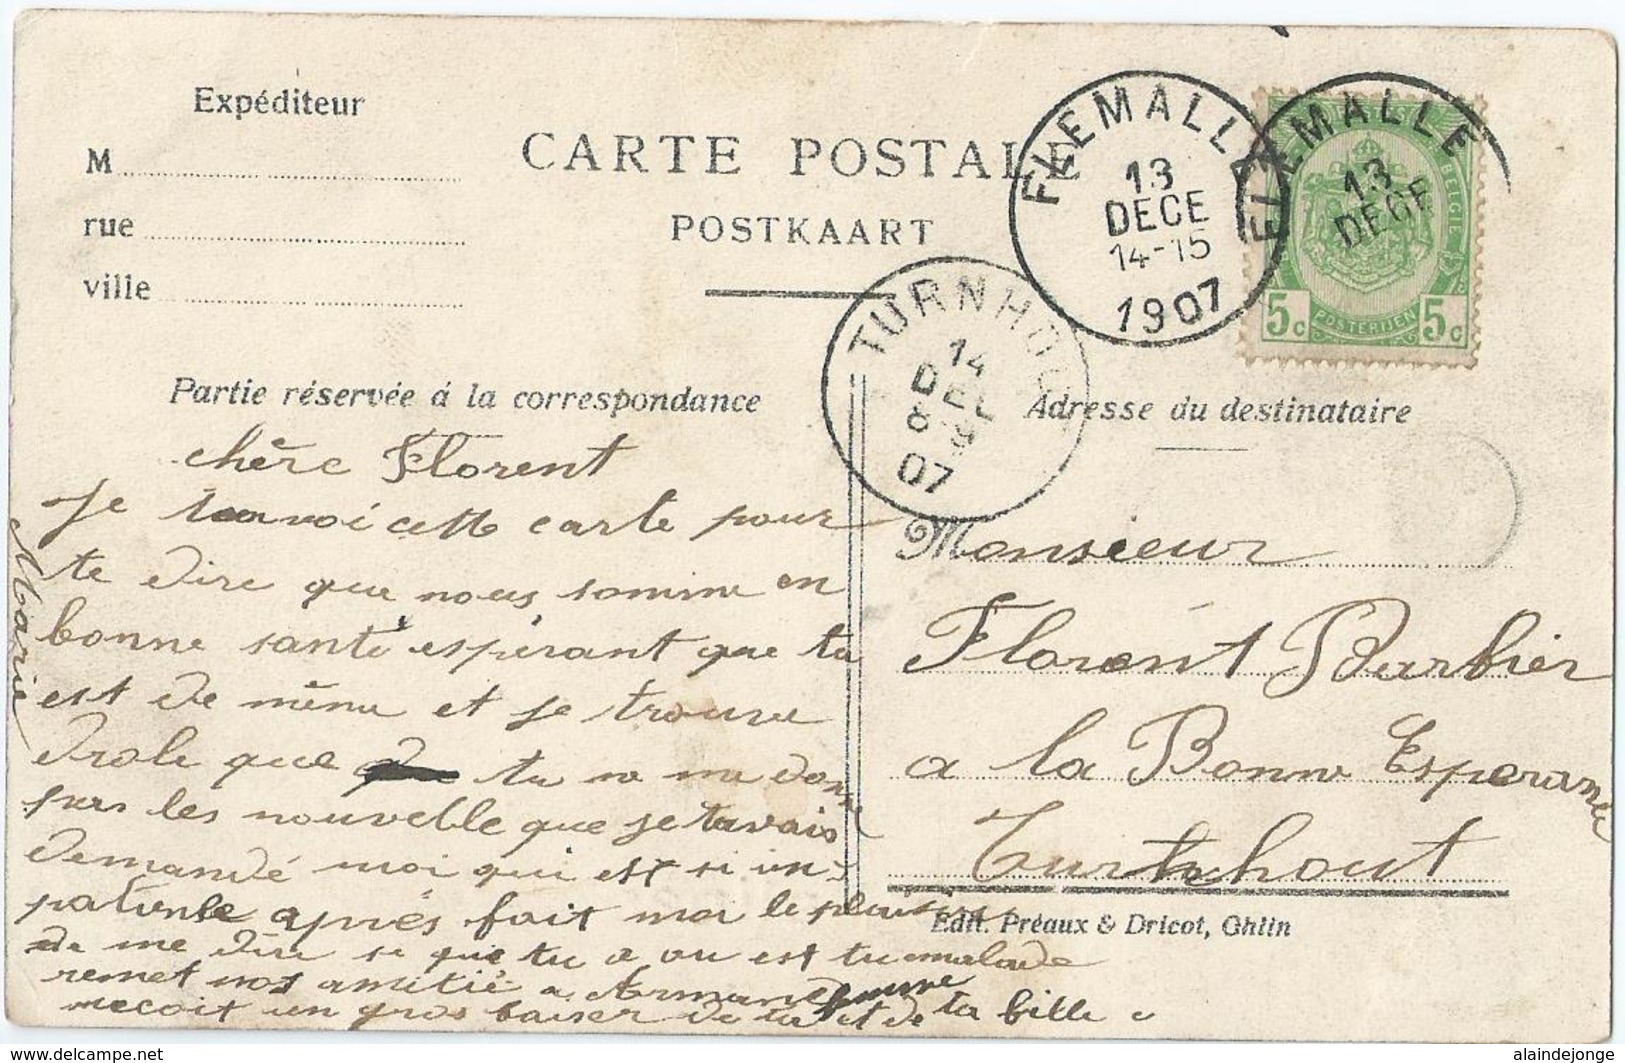 Expéditeur
M
rue
ville
CARTE POSTALE
POSTKAART
FLEMALLE
13
DECE
14-15
1907
FLEMALLE
13
DECE
BELGIE
5c
POSTERIJEN
5c
TURNHOUT
14
DEC
8-9
07
Partie réservée á la correspondance
Adresse du destinataire
chère Florent
Je cette carte pour
te dire que nous somme en
bonne santé espérant que tu
est de même et je trouve
drole que tu ne me donne
pas les nouvelle que je tavais
demandé moi qui est si im-
patiente après fait moi le plaisir
de me dire se que tu a ou est tu malade
remet nos amitié a Armand
recoit un gros baiser de ta et de ta fille
Marie
Monsieur
Florent Barbier
a la Bonne Esperance
Turnhout
Edit. Préaux & Dricot, Ghlin
https://www.delcampe.net
alaindejonge